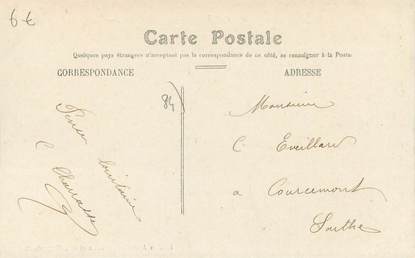 6 €
Carte Postale
Quelques pays étrangers n'acceptent pas la correspondance de ce côté, se renseigner à la Poste.
CORRESPONDANCE
ADRESSE
84
Monsieur
C. Eveillard
à Courcemont
Sarthe
C